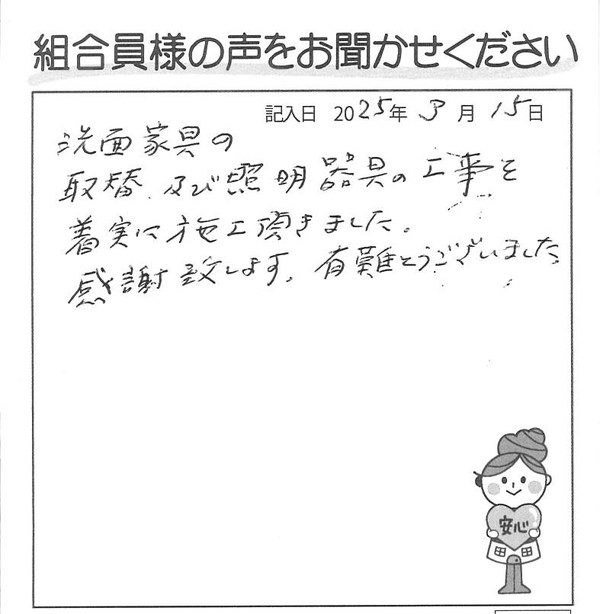 組合員様の声をお聞かせください
記入日 2025年 3月 15日
洗面家具の
取替、及び照明器具の工事を
着実に施工頂きました。
感謝致します。有難とうございました
安心